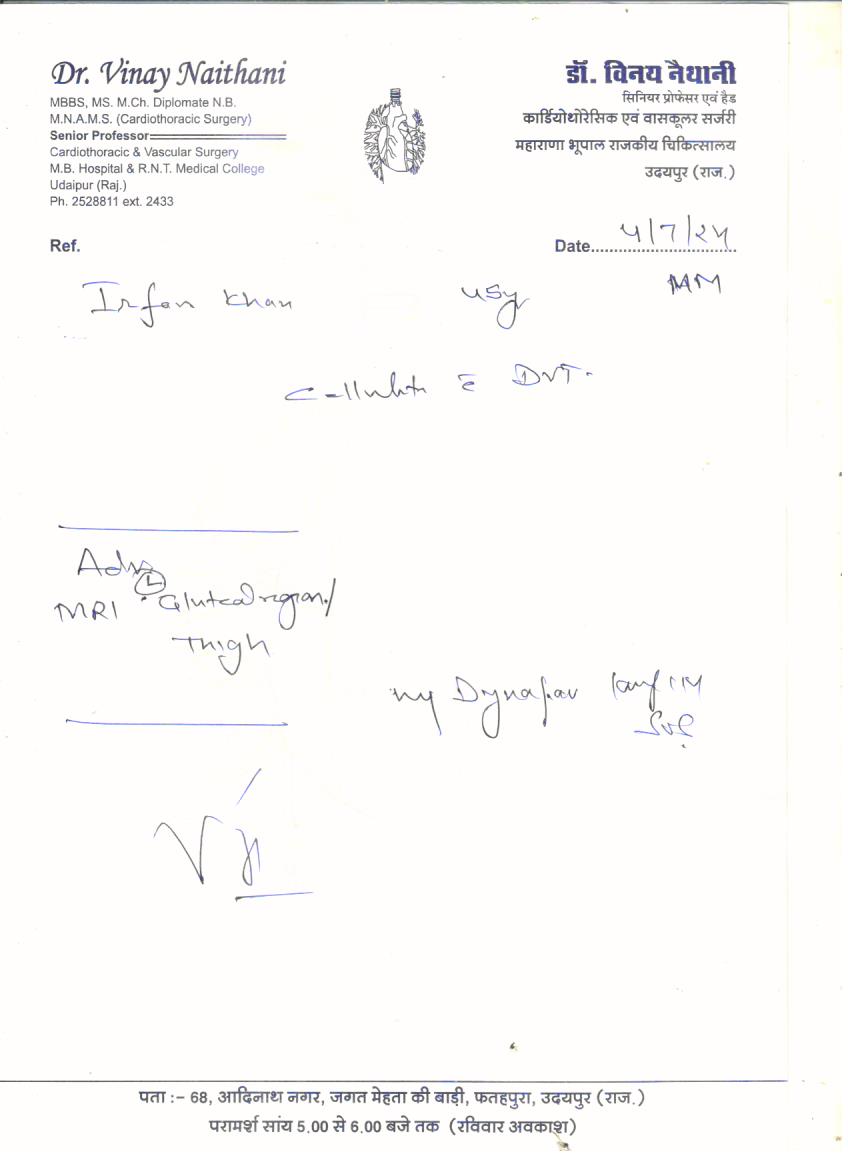 Dr. Vinay Naithani
MBBS, MS. M.Ch. Diplomate N.B.
M.N.A.M.S. (Cardiothoracic Surgery)
Senior Professor
Cardiothoracic & Vascular Surgery
M.B. Hospital & R.N.T. Medical College
Udaipur (Raj.)
Ph. 2528811 ext. 2433
डॉ. विनय नैथानी
सिनियर प्रोफेसर एवं हैड
कार्डियोथोरेसिक एवं वासकूलर सर्जरी
महाराणा भूपाल राजकीय चिकित्सालय
उदयपुर (राज.)
Ref.
Date
Irfan Khan
DVT.
Adv
MRI (L) Gluteal region/
Thigh
Dynapar
पता :- 68, आदिनाथ नगर, जगत मेहता की बाड़ी, फतहपुरा, उदयपुर (राज.)
परामर्श सांय 5.00 से 6.00 बजे तक (रविवार अवकाश)